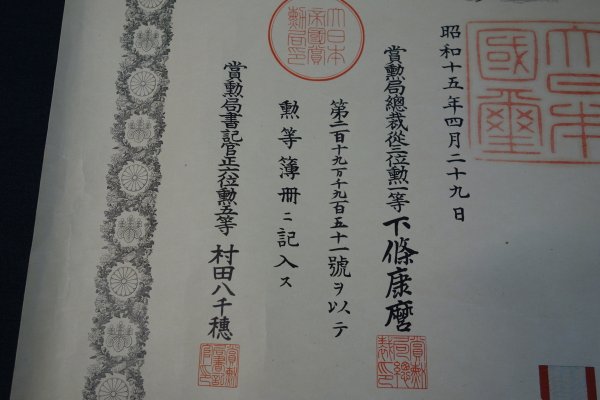 大日本國璽
昭和十五年四月二十九日
賞勲局總裁從三位勲一等下條康麿
第二百十九万千九百五十一號ヲ以テ
勲等簿冊ニ記入ス
賞勲局書記官正六位勲五等村田八千穗
大日本帝國賞勲局印